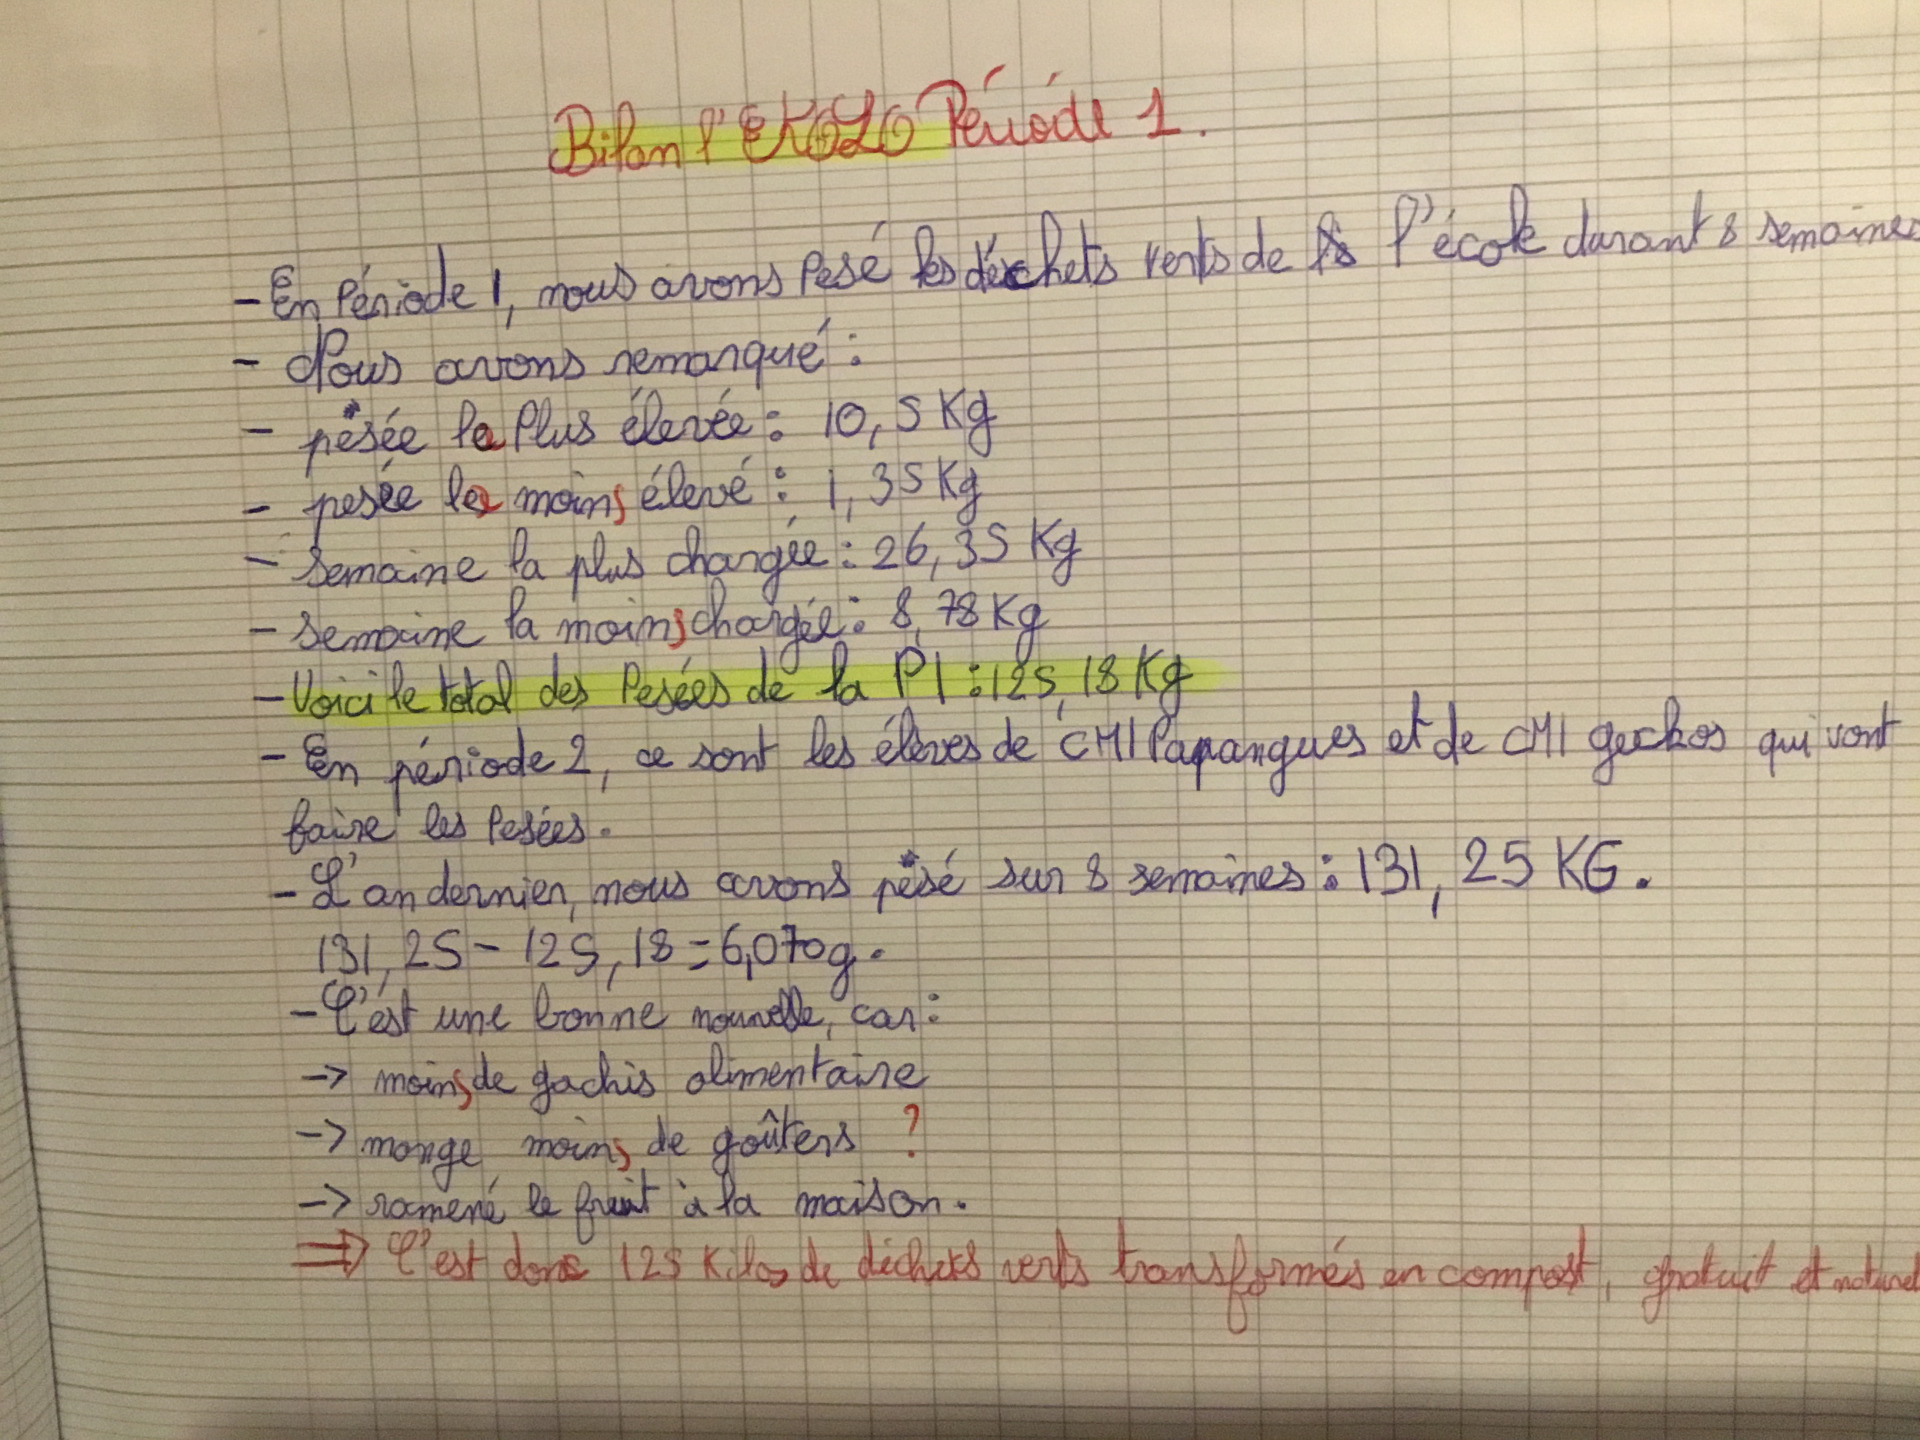 Bilan l'EKOLO Période 1.
- En Période 1, nous avons Pesé les déchets verts de l'école durant 8 semaines
- Nous avons remarqué :
- pesée la Plus élevée : 10,5 Kg
- pesée la moins élevé : 1,35 Kg
- semaine la plus chargée : 26,35 Kg
- semaine la moins chargée : 8,78 Kg
- Voici le total des Pesées de la P1 : 125,18 Kg
- En période 2, ce sont les élèves de CM1 Papangues et de CM1 geckos qui vont
faire les Pesées.
- L'an dernier, nous avons pesé sur 8 semaines : 131,25 KG.
131,25 - 125,18 = 6,070g.
- C'est une bonne nouvelle, car :
-> moins de gachis alimentaire
-> mange moins de goûters ?
-> ramené le fruit à la maison.
=> C'est donc 125 Kilos de déchets verts transformés en compost, gratuit et naturel